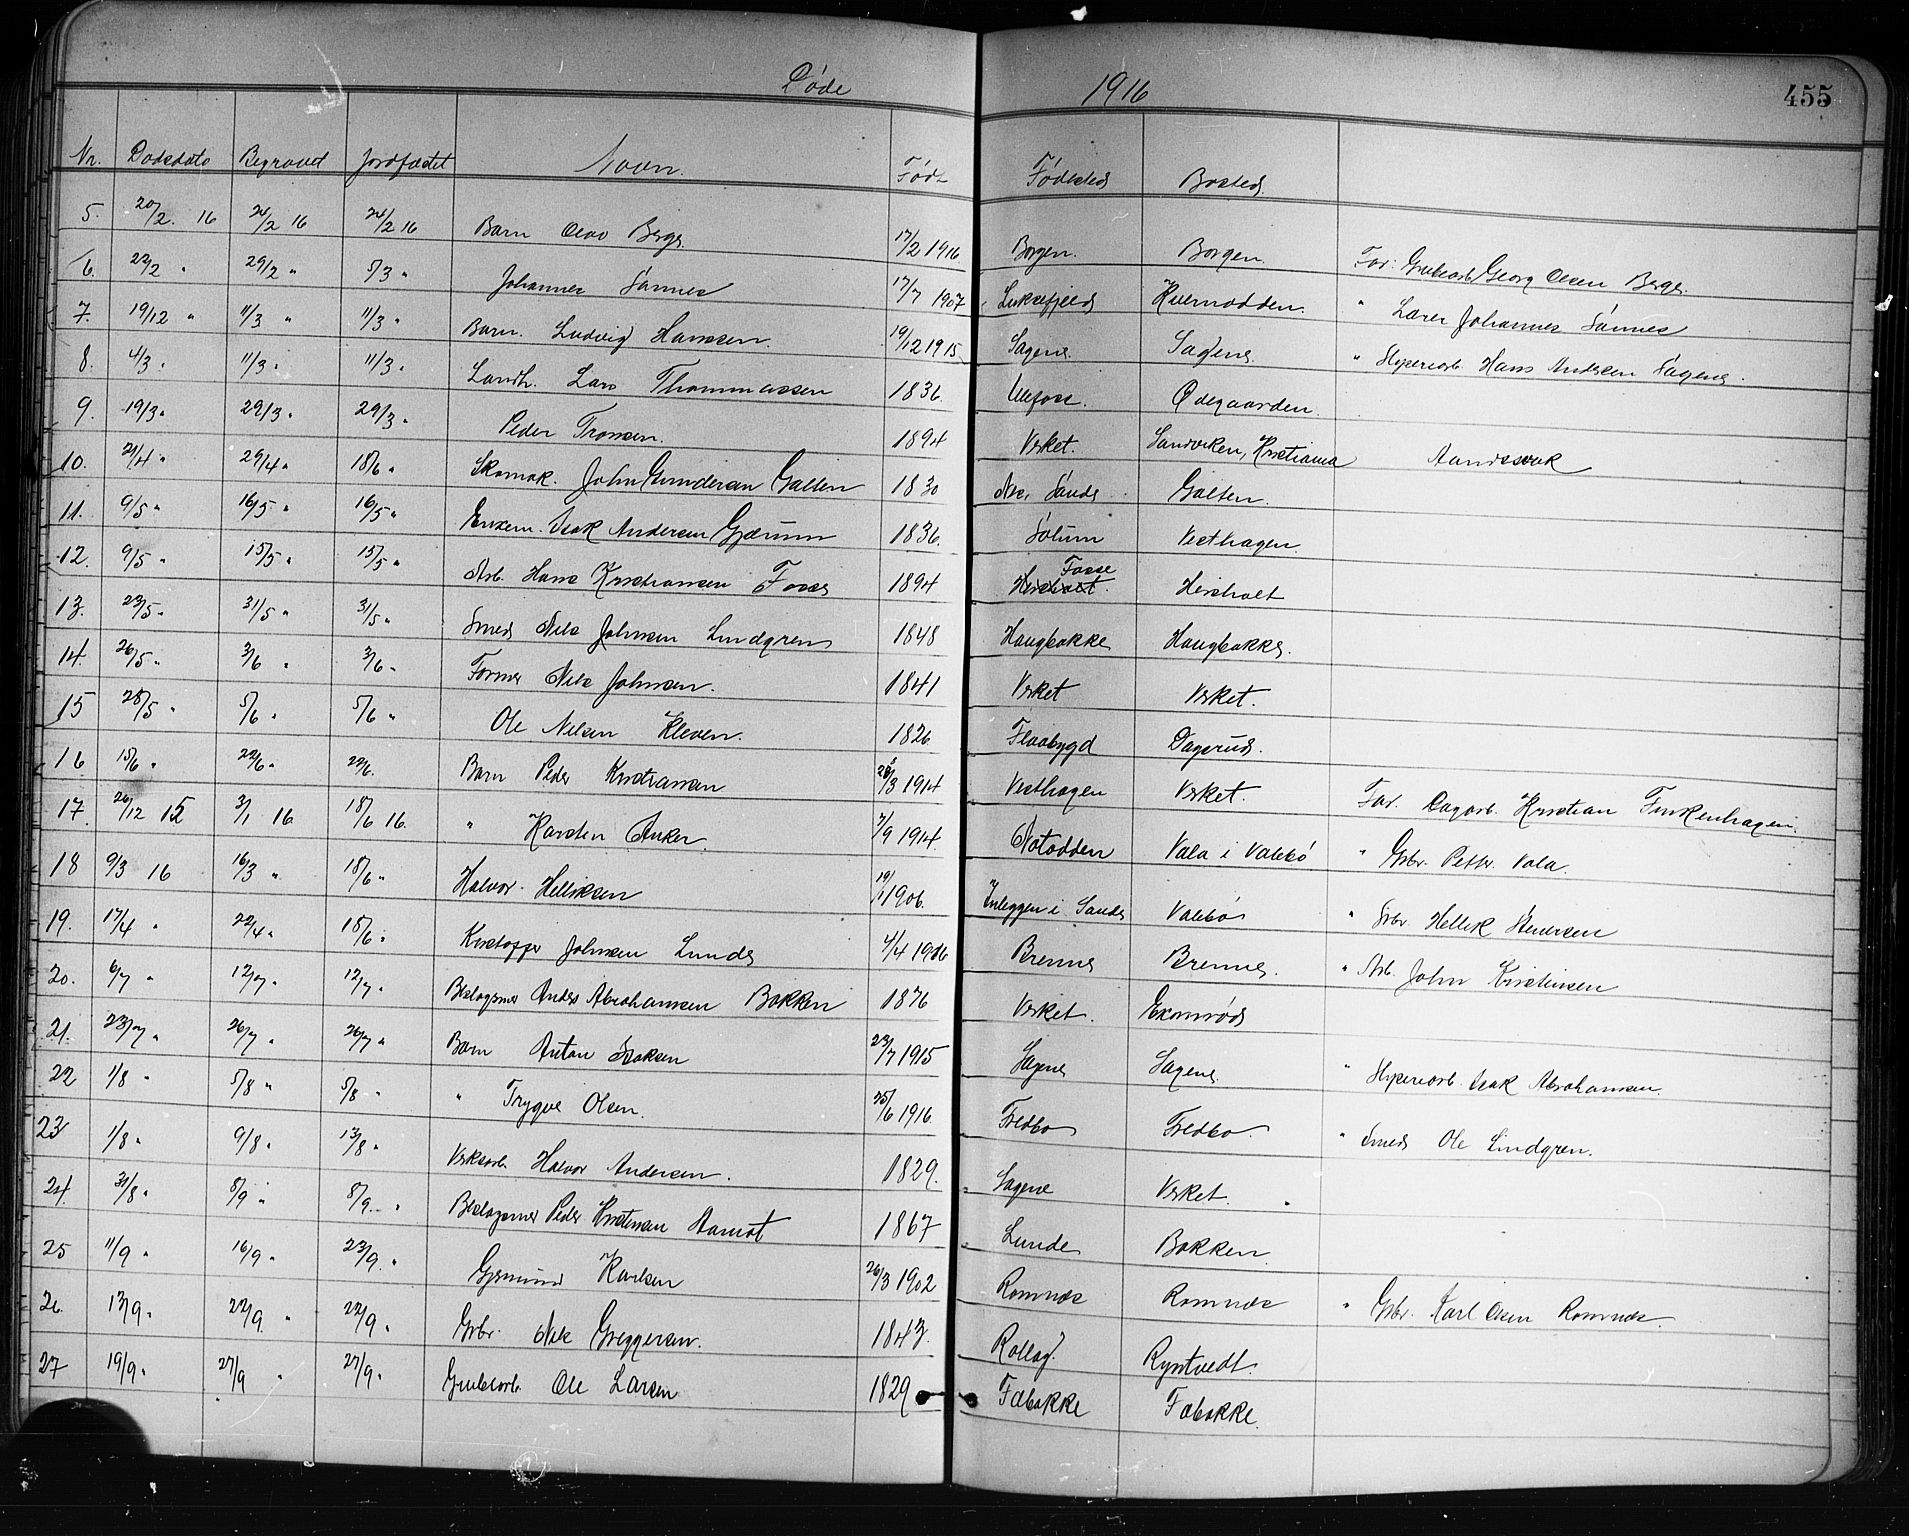 Døde 1916 455
Nr. Dødsdato Begravet Jordfæstet Navn. Født Fødested Bosted.
5. 20/2. 16 24/2 16 24/2 16 Barn Olav Berge. 17/2 1916 Borgen. Borgen. Far: Grubearb. Georg Olsen Berge.
6. 22/2 " 29/2 " 5/3 " Johannes Sannes 17/7 1907 Luksefjeld Kvernodden. " Lærer Johannes Sannes
7. 19/12 " 11/3 " 11/3 " Barn. Ludvig Hanssen. 19/12 1915 Sagene. Sagene. " Høvleriarb. Hans Andersen Sagene.
8. 4/3 " 11/3 " 11/3 " Landh. Lars Thommassen 1836. Ulefoss. Ødegaarden.
9. 19/3 " 29/3 " 29/3 " Peder Fransen. 1894 Verket. Sandviken, Kristiania Aandssvak
10. 21/4 " 29/4 " 18/6 " Skomak. John Gundersen Galten 1830 Ner Sande Galten.
11. 9/5 " 16/5 " 16/5 " Enkem. Isak Andersen Gjærum 1836. Solum Vesthagen.
12. 9/5 " 15/5 " 15/5 " Arb. Hans Kristiansen Fosse 1894 Fosse Hersholt
13. 23/5 " 31/5 " 31/5 " Smed Nils Johnsen Lindgren 1848 Haugbakke Haugbakke.
14. 26/5 " 3/6 " 3/6 " Former Nils Johnsen. 1841 Verket Verket.
15 28/5 " 5/6 " 5/6 " Ole Nilsen Kleven. 1826 Flaabygd Dagsrud.
16 15/6 " 22/6 " 22/6. Barn Peder Kristiansen 28/3 1914 Vesthagen Verket. Far. Dagarb. Kristian Finkenhagen.
17. 26/12 15 3/1 16 18/6 16. " Karsten Anker. 7/9 1914 Notodden Vala i Valebø " Gbr. Petter Vala.
18 9/3 16 16/3 " 18/6 " Halvor Helliksen 19/1 1906. i Sande Valebø " Gbr. Hellik Halvorsen
19. 17/4 " 22/4 " 18/6 " Kristoffer Johnsen Lunde 4/4 1916 Brenne Brenne. " Arb. John Kristensen
20. 6/7 " 12/7 " 12/7 " Beslagsmed Anders Abrahamsen Bakken 1876 Verket. Ekornrød
21. 23/7 " 26/7 " 26/7 " Barn Anton Isaksen 23/7 1915 Sagene Sagene. " Høvleriarb. Isak Abrahamsen.
22 1/8 " 5/8 " 5/8 " " Trygve Olsen. 25/6 1916 Fredbo Fredbo. " Smed Ole Lindgren.
23 1/8 " 9/8 " 13/8 " Verksarb. Halvor Andersen. 1829. Sagene Verket.
24. 31/8 " 8/9 " 8/9 " Beslagsmed Peder Kristian Aamot 1867 Lunde Bakken
25 11/9 " 16/9 " 23/9. " Gjermund Karlsen 26/3 1902 Romnes Romnes " Gbr. Karl Olsen Romnes.
26. 17/9 " 22/9 " 22/9 " Gbr. Nils Greggersen. 1843. Rollag. Rystvedt.
27 19/9 " 27/9 " 27/9 " Grubearb. Ole Larsen 1829 Fæbakke Fæbakke.